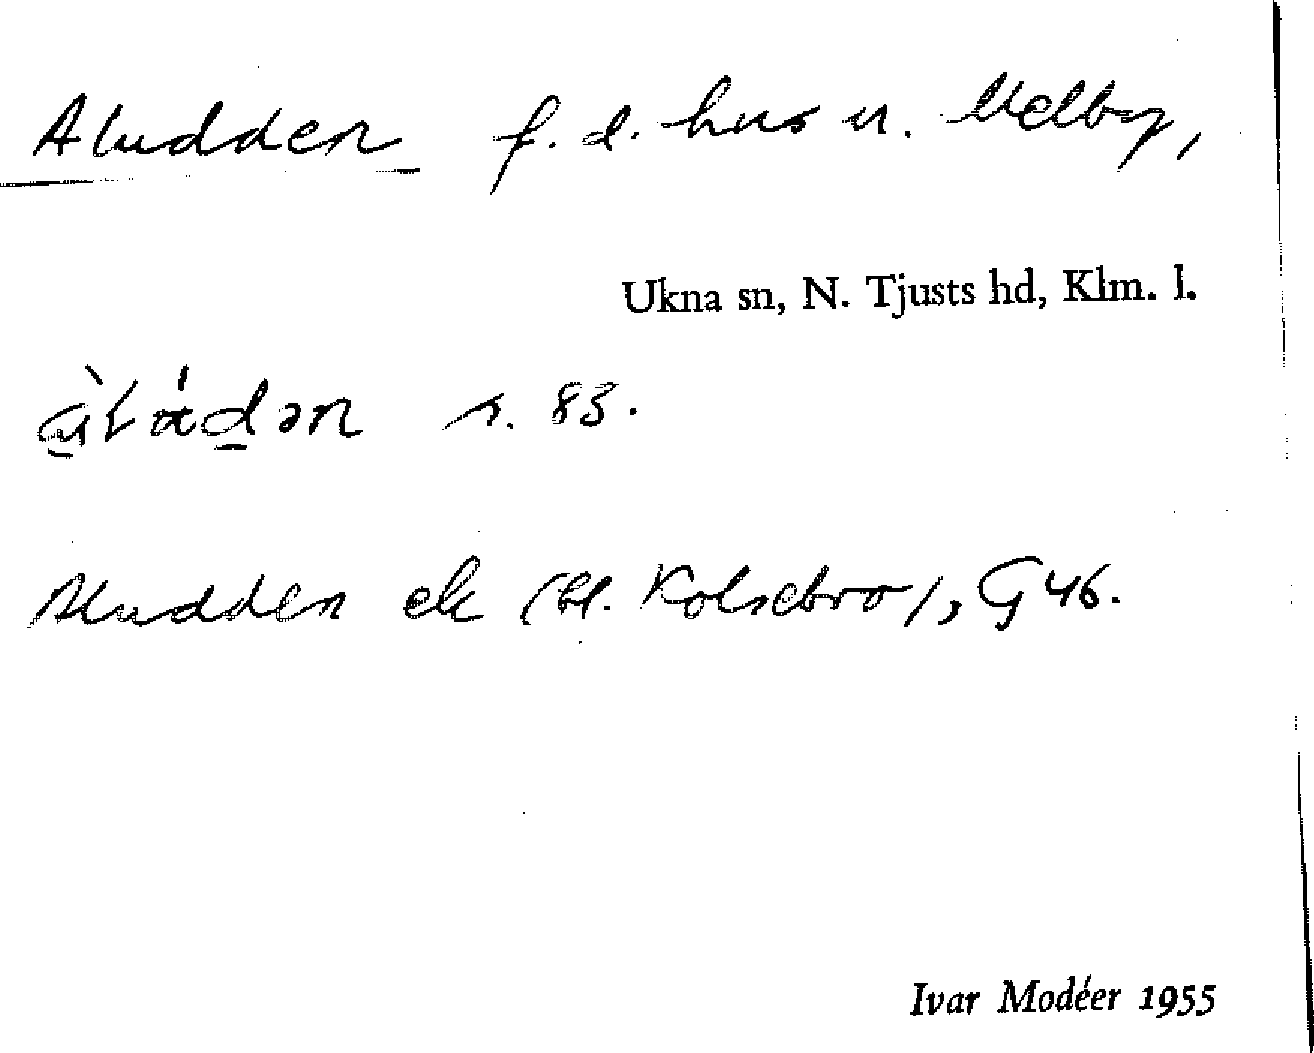 Aludden f. d. hus u. Melby,
Ukna sn, N. Tjusts hd, Klm. l.
s. 83.
Aludden ek (bl. Kolsebro), G 46.
Ivar Modéer 1955